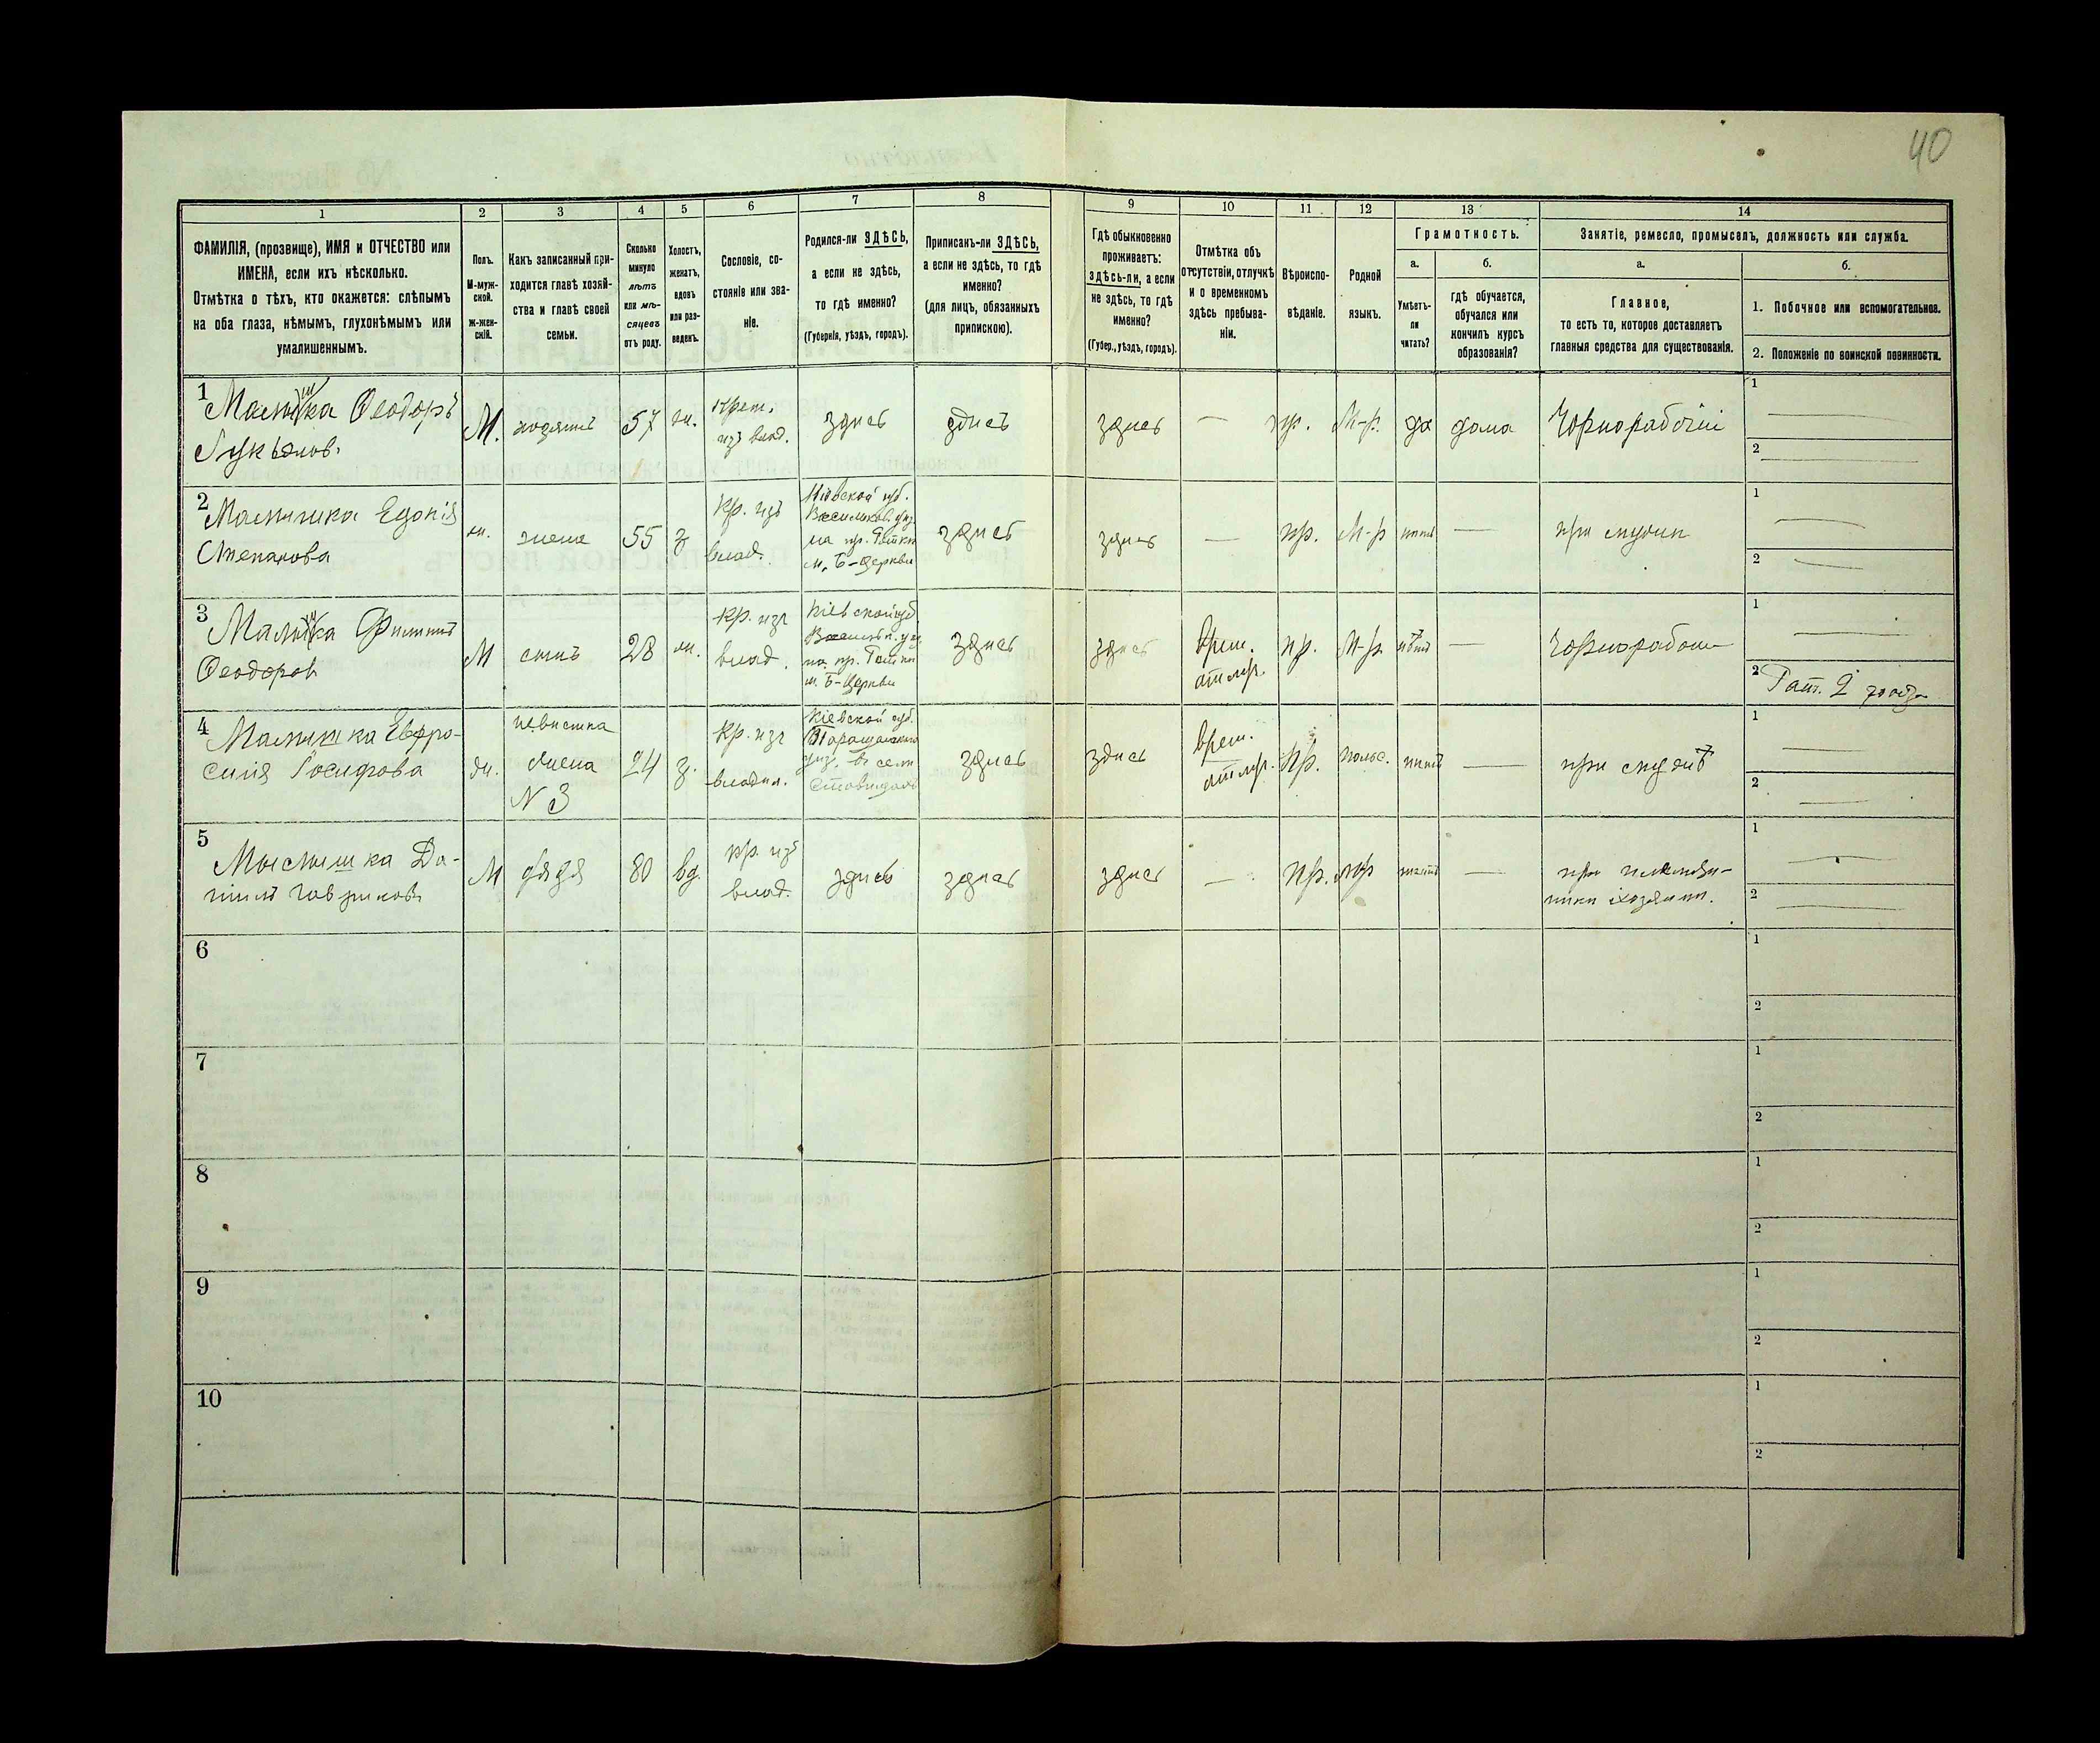 40
1
2
3
4
5
6
7
8
9
10
11
12
13
14
ФАМИЛІЯ, (прозвище), ИМЯ и ОТЧЕСТВО или
ИМЕНА, если ихъ нѣсколько.
Отмѣтка о тѣхъ, кто окажется: слѣпымъ
на оба глаза, нѣмымъ, глухонѣмымъ или
умалишеннымъ.
Полъ.
М-муж-
ской.
Ж-жен-
скій.
Какъ записанный при-
ходится главѣ хозяй-
ства и главѣ своей
семьи.
Сколько
минуло
лѣтъ
или мѣ-
сяцевъ
отъ роду.
Холостъ,
женатъ,
вдовъ
или раз-
веденъ.
Сословіе, со-
стояніе или зва-
ніе.
Родился-ли ЗДѢСЬ,
а если не здѣсь,
то гдѣ именно?
(Губернія, уѣздъ, городъ).
Приписанъ-ли ЗДѢСЬ,
а если не здѣсь, то гдѣ
именно?
(для лицъ, обязанныхъ
припискою).
Гдѣ обыкновенно
проживаетъ:
ЗДѢСЬ-ЛИ, а если
не здѣсь, то гдѣ
именно?
(Губер., уѣздъ, городъ).
Отмѣтка объ
отсутствіи, отлучкѣ
и о временномъ
здѣсь пребыва-
ніи.
Вѣроиспо-
вѣданіе.
Родной
языкъ.
Грамотность.
а.
Умѣетъ-
ли
читать?
б.
гдѣ обучается,
обучался или
кончилъ курсъ
образованія?
Занятіе, ремесло, промыселъ, должность или служба.
а.
Главное,
то есть то, которое доставляетъ
главныя средства для существованія.
б.
1. Побочное или вспомогательное.
2. Положеніе по воинской повинности.
1
Ѳеодоръ
Лукьянов.
М. 57 ж.
крест.
изъ влад.
здись
здись
здись
—
пр.
М-р.
да
дома
Чорнорабочій
1
2
2
Степанова
ж. жена 55 з
Кр. изъ
влад.
Кіевской губ.
Васильков. уиз.
м. Б-Церкви
здись
здись
—
пр.
М-р
—
1
2
3
Филипъ
Ѳеодоров
М сынъ 28 ж.
Кр. изъ
влад.
Кіевской губ
м. Б-Церкви
здись
здись
врем.
отлуч.
пр.
М-р.
нѣтъ
—
1
2
4
Малышка Евфро-
синія Іосифова
ж.
невистка
жена
N 3
24 з.
Кр. изъ
Кіевской губ.
Таращанскаго
уиз. в сели
здись
здись
врем.
отлуч.
Пр.
польс.
—
при мужѣ
1
2
5
Да-
М дядя 80 вд.
кр. изъ
влад.
здись
здись
здись
—
Пр.
мр
—
1
2
6
1
2
7
1
2
8
1
2
9
1
2
10
1
2